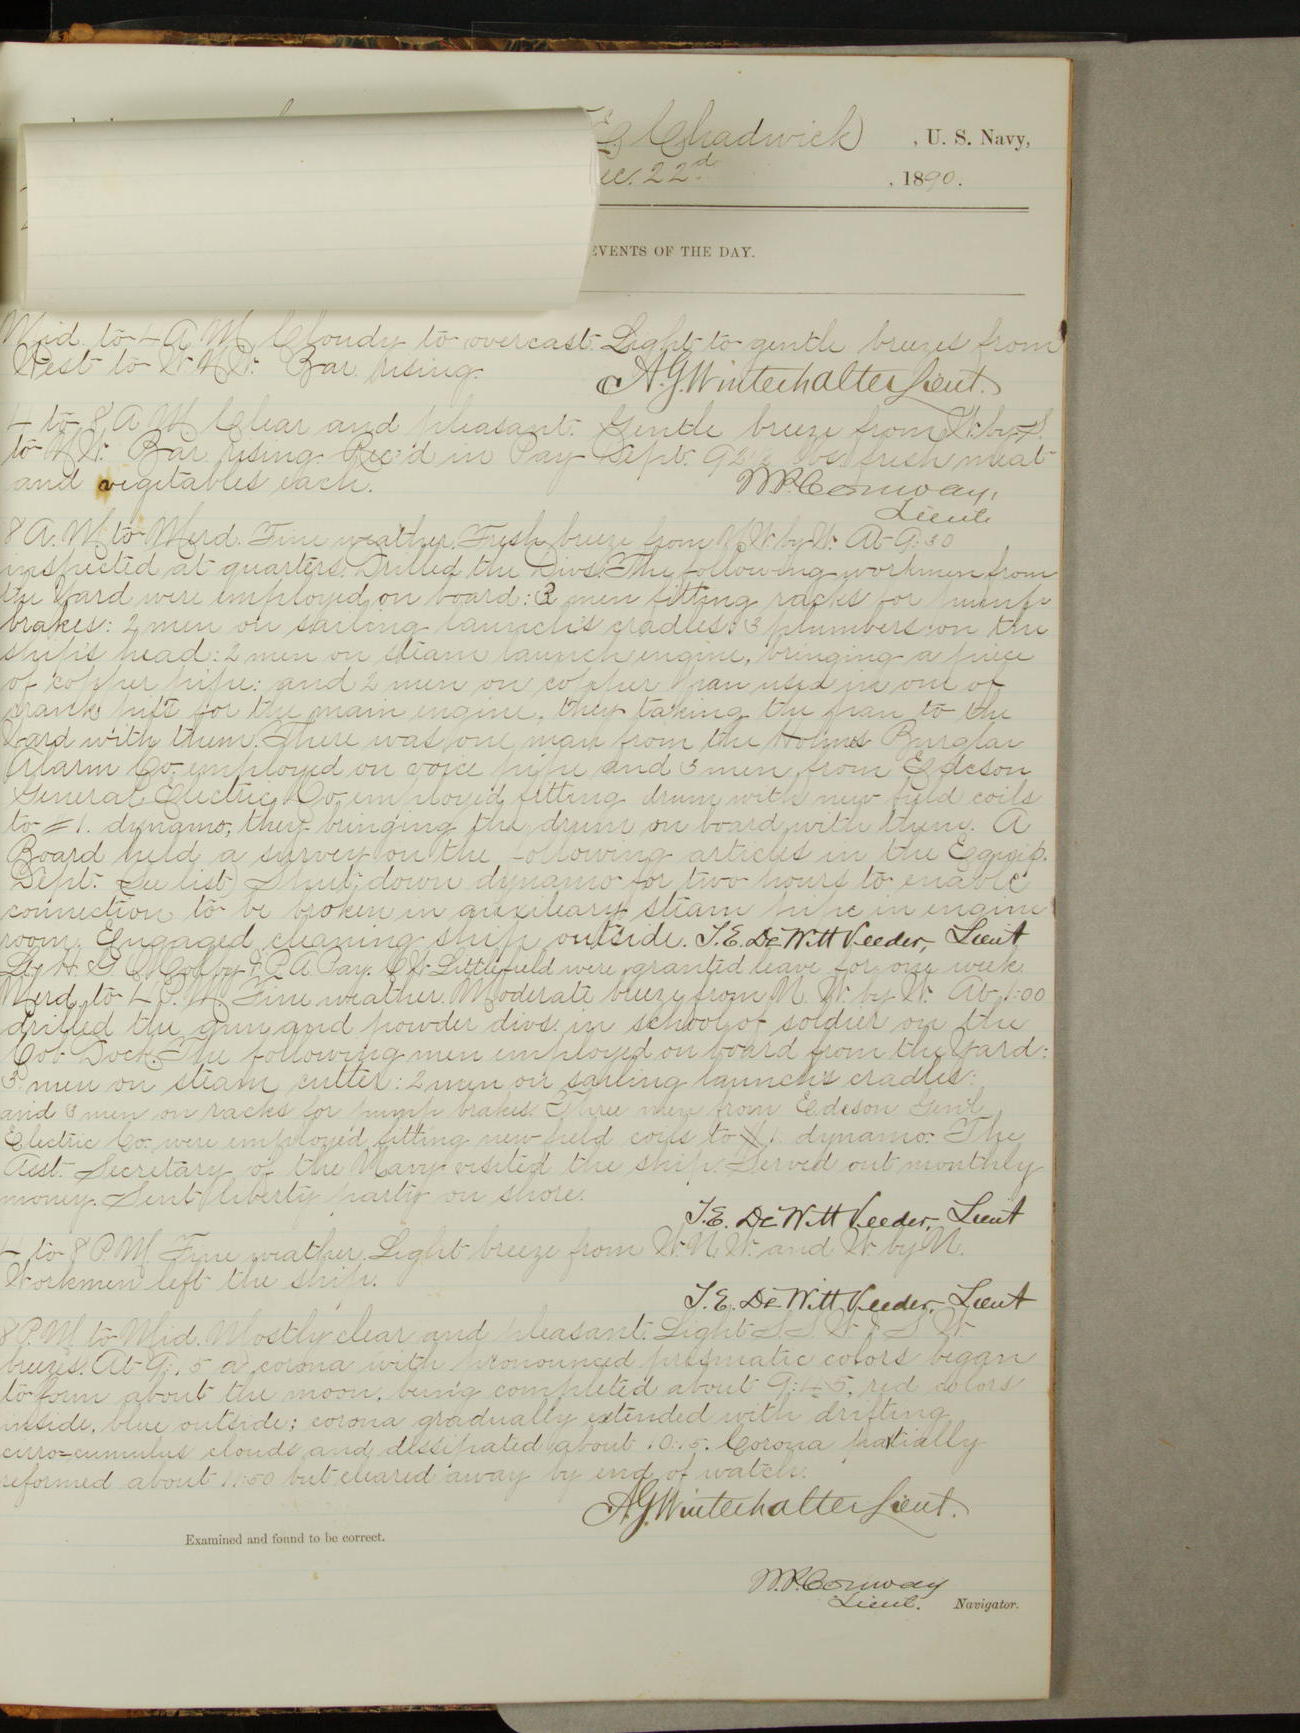 Chadwick, U. S. Navy,
ec. 22d, 1890.
EVENTS OF THE DAY.
Mid. to 4 A.M. Cloudy to overcast. Light to gentle breezes from
West to W.N.W. Bar. rising.
A.G. Winterhalter Lieut.
4 to 8 A.M. Clear and pleasant. Gentle breeze from W. by S.
to N.W. Bar. rising. Rec'd in Pay Dept. 92½ lbs. fresh meat
and vegitables each.
W.P. Conway,
Lieut.
8 A.M. to Merd. Fine weather. Fresh breeze from N.W. by W. At 9:30
inspected at quarters. Drilled the Divs. The following workmen from
the Yard were employed on board: 3 men fitting racks for pump
brakes: 2 men on sailing launch's cradles: 3 plumbers on the
ship's head: 2 men on steam launch engine, bringing a piece
of copper pipe: and 2 men on copper pan used in one of
crank pits for the main engine, they taking the pan to the
Yard with them. There was one man from the Holmes Burglar
Alarm Co. employed on voice pipe and 3 men from Edeson
General Electric Co. employed fitting drum with new field coils
to #1. dynamo, they bringing the drum on board with them. A
Board held a survey on the following articles in the Equip.
Dept. See list) Shut down dynamo for two hours to enable
connection to be broken in auxiliary steam pipe in engine
room. Engaged cleaning ship outside. T.E. DeWitt Veeder, Lieut
H. G. Colby & P. A. Pay. C.W. Littlefield were granted leave for one week
Merd. to 4 P.M. Fine weather. Moderate breeze from N.W. by W. At 1:00
drilled the gun and powder divs. in school of soldier on the
Cob Dock. The following men employed on board from the Yard:
3 men on steam cutter: 2 men on sailing launch's cradles:
and 3 men on racks for pump brakes. Three men from Edeson Genl.
Electric Co. were employed fitting new field coils to #1 dynamo. The
Asst. Secretary of the Navy visited the ship. Served out monthly
money. Sent liberty party on shore.
T.E. DeWitt Veeder, Lieut
4 to 8 P.M. Fine weather. Light breeze from W.N.W. and W. by N.
Workmen left the ship.
T.E. DeWitt Veeder, Lieut
8 P.M. to Mid. Mostly clear and pleasant. Light S.S.W. & S.W.
breezes. At 9:15 a corona with pronounced prismatic colors began
to form about the moon, being completed about 9:45, red colors
inside, blue outside; corona gradually extended with drifting
cirro=cumulus clouds and dissipated about 10:15. Corona partially
reformed about 11:50 but cleared away by end of watch.
A.G. Winterhalter Lieut.
Examined and found to be correct.
W.P. Conway
Lieut. Navigator.